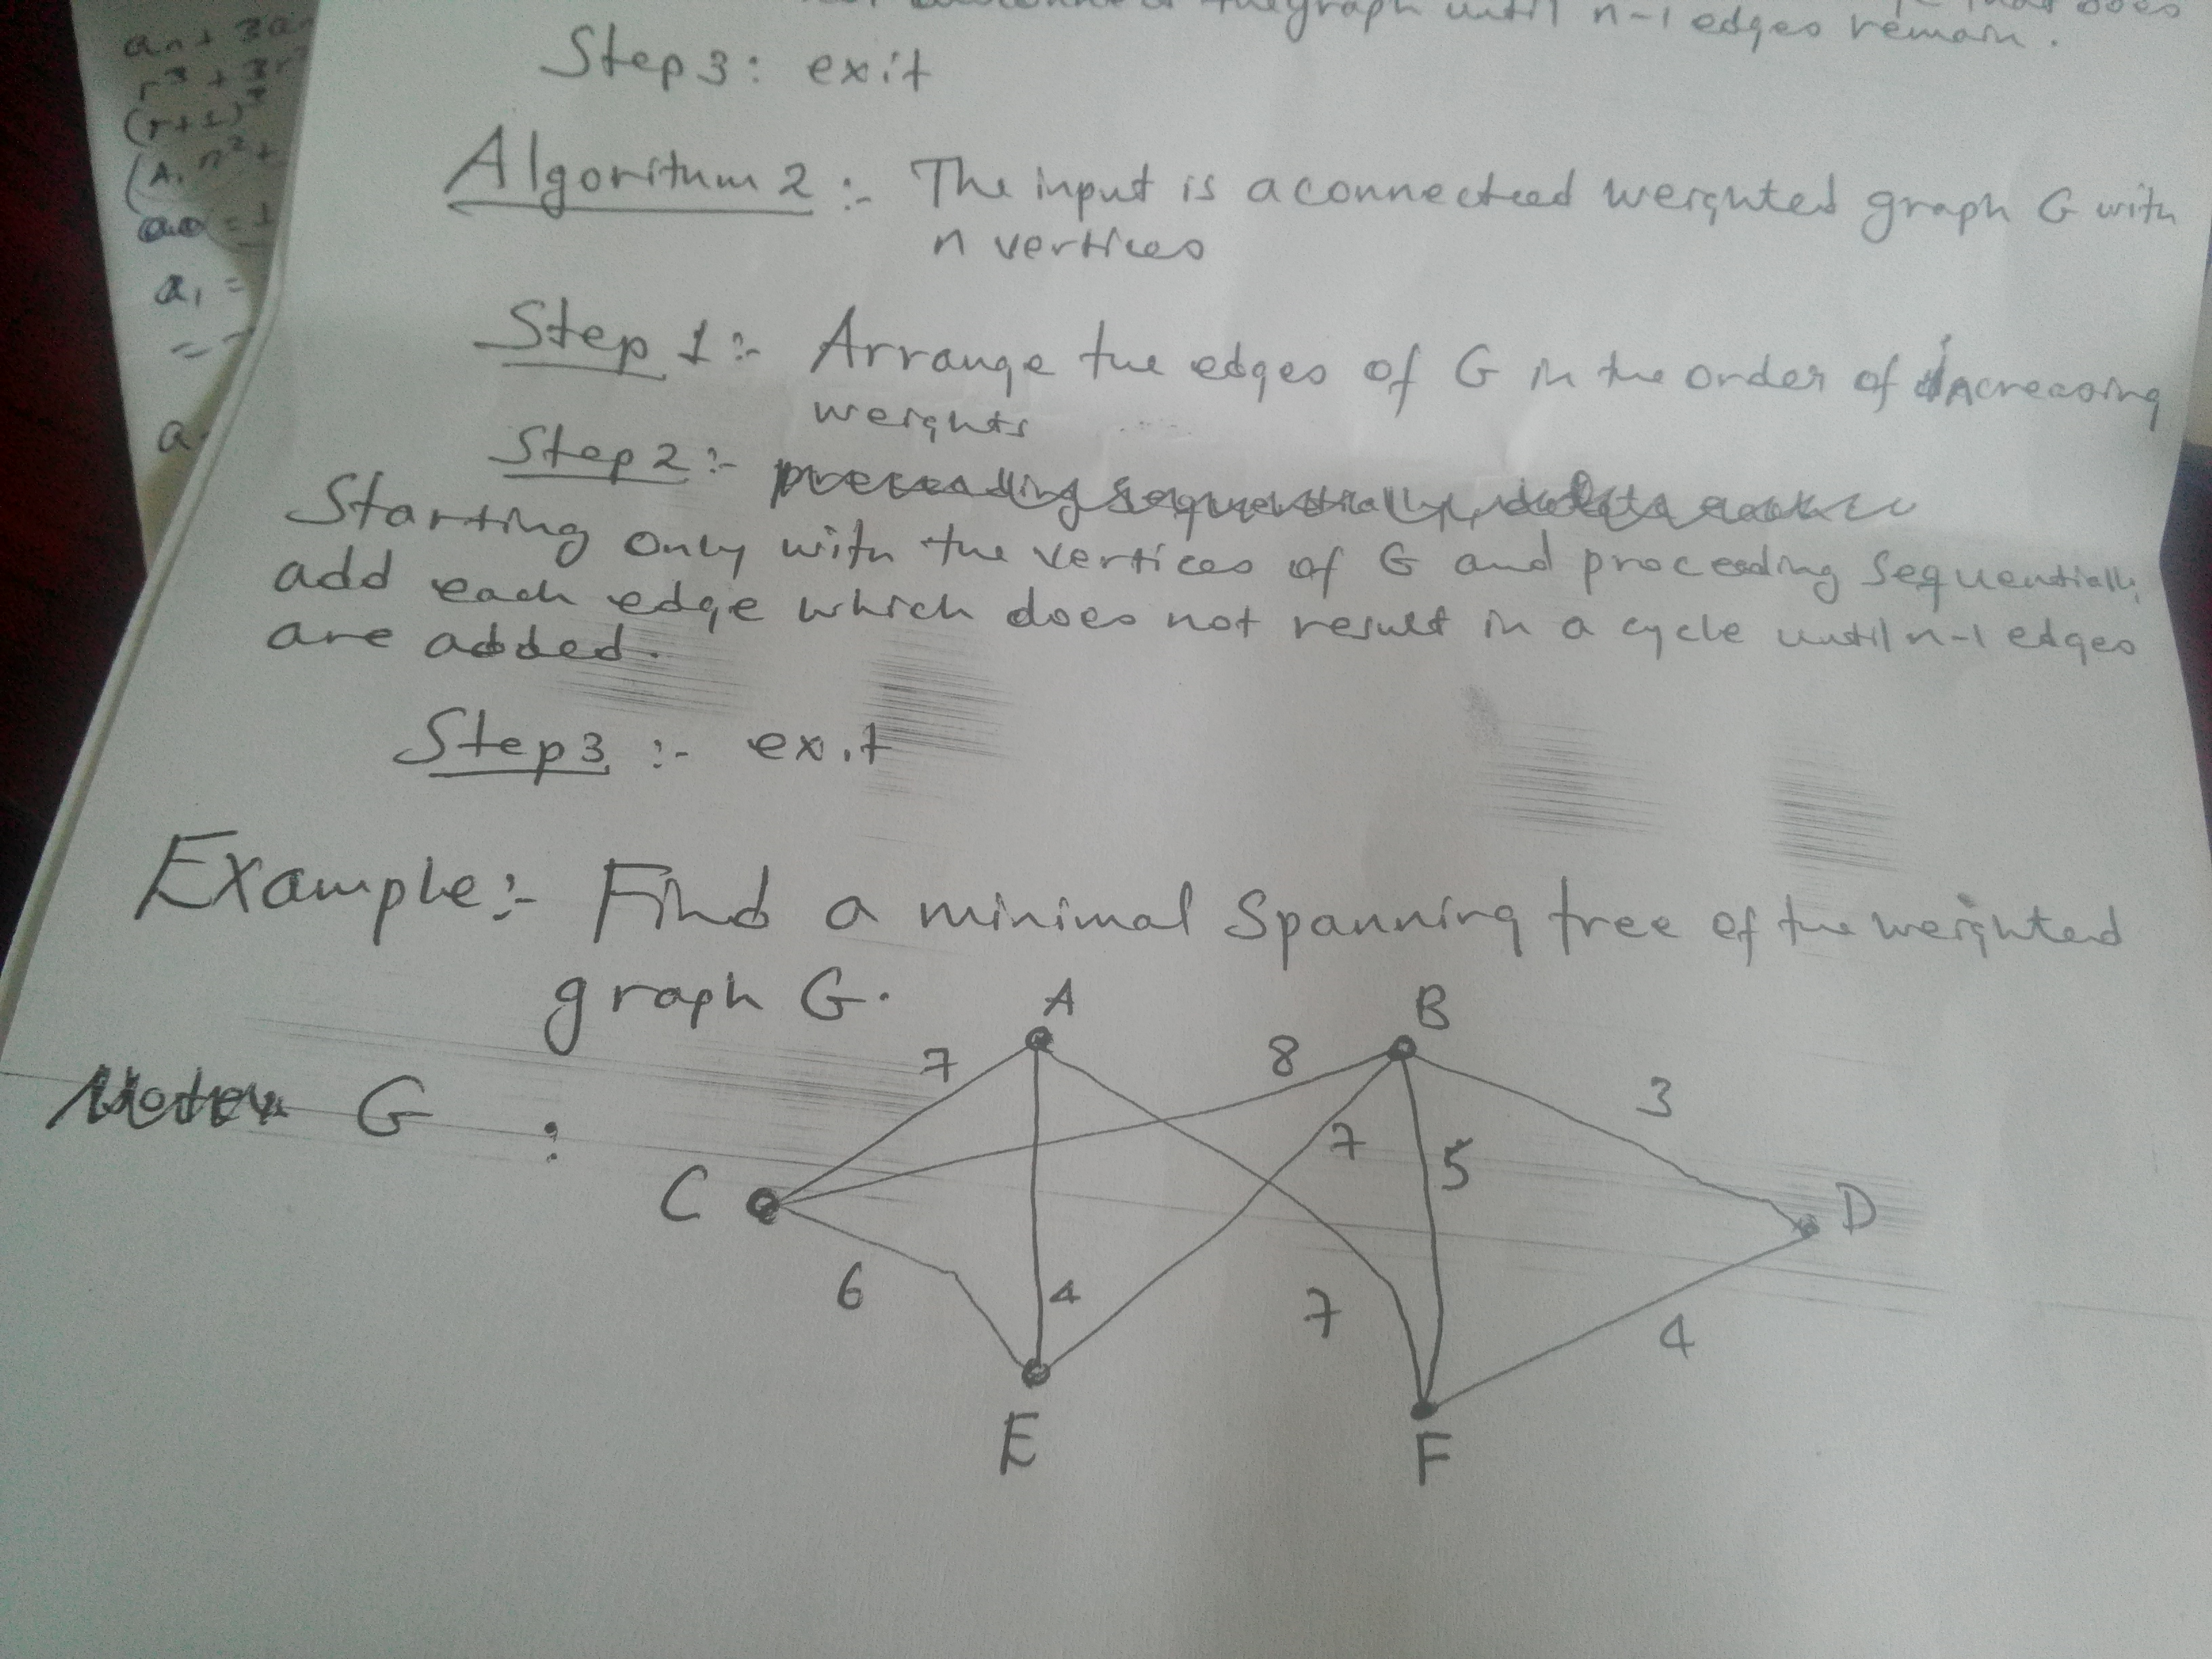 the graph until n-1 edges remain.
Step 3: exit
Algoritum 2 :- The input is a connected weighted graph G with
n vertices
Step 1:- Arrange the edges of G in the order of increasing
weights
Step 2:-
Starting only with the vertices of G and proceeding sequentially
add each edge which does not result in a cycle until n-1 edges
are added.
Step 3 :- exit
Example:- Find a minimal Spanning tree of the weighted
graph G.
G :
A
B
7
8
3
7
5
C
D
6
4
7
4
E
F
an + 3an
r³ + 3r²
(r+1)³
(A, n² +
a0 = 1
a₁ =
=
a